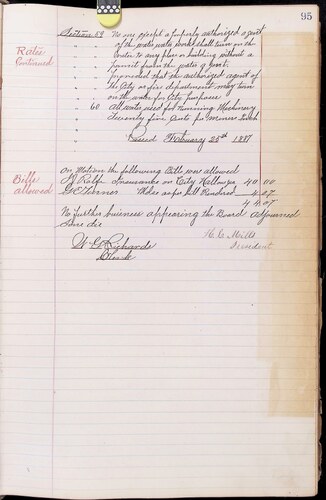 95
Rates
Continued
Section 59 No one except a properly authorized agent
of the water works shall turn on the
water to any place or building without a
permit from the water agent.
provided that the authorized agent of
the City or fire department may turn
on the water for City purposes
" 60 All water used for running Machinery
Seventy five Cents per miners Inch
Passed February 25th 1887
Bills
allowed
On Motion the following Bills were allowed
Insurance on City Hall 40.00
as per bill Rendered 4.07
44.07
No further business appearing the Board Adjourned
Sine die
W G Richards
Clerk
H. C. Mills
President